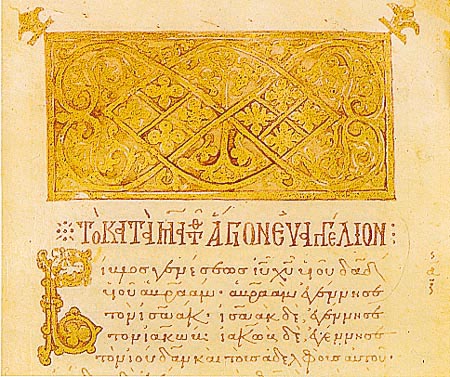 ΤΟ ΚΑΤΑ ΜΑΤΘ ΑΓΙΟΝ ΕΥΑΓΓΕΛΙΟΝ:
Βίβλος γενέσεως ιυ χυ υἱοῦ δαδ
υἱοῦ ἀβραάμ· ἀβραὰμ ἐγέννησε
τὸν ισαάκ· ισαὰκ δὲ ἐγέννησε
τὸν ιακώβ· ιακὼβ δὲ ἐγέννησε
τὸν ιούδαν καὶ τοὺς ἀδελφοὺς αὐτοῦ·